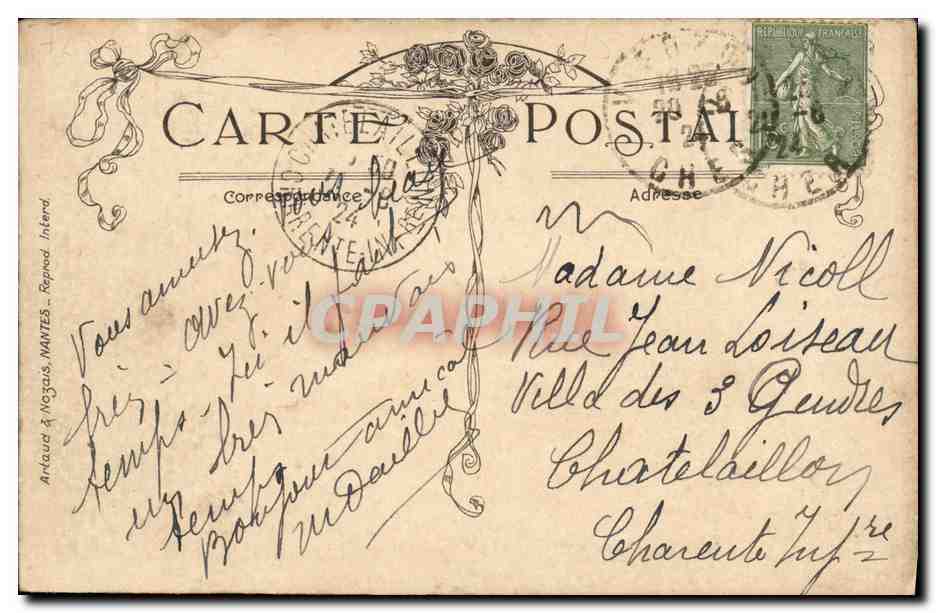 RÉPUBLIQUE FRANÇAISE
CARTE POSTALE
Correspondance
Adresse
CHER
CHER
24
Vous amusez
avez-vous
temps. Ici il fait
un très mauvais
temps
Bonjour amical
Madame Nicoll
Rue Jean Loiseau
Villa des 3 Gendres
Chatelaillon
Charente Infre
CPAPHIL
Artaud & Nozais, NANTES - Reprod. Interd.